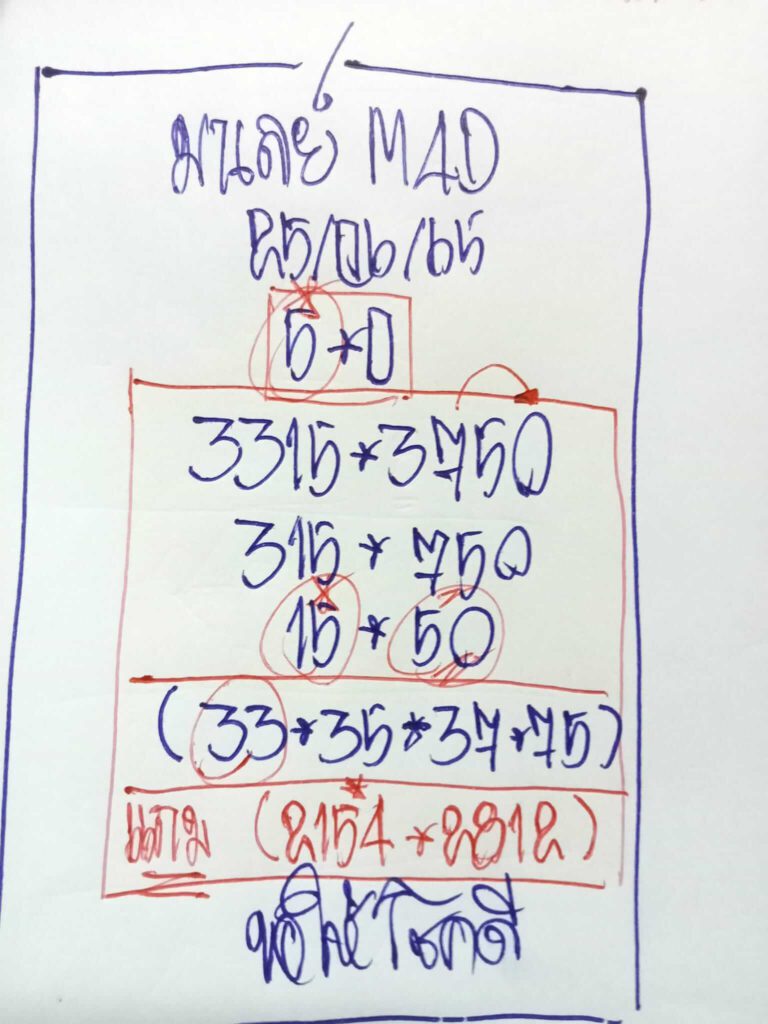 มาเลย์ M4D
25/06/65
5*0
3315*3750
315*750
15*50
(33*35*37*75)
แถม (2154*2812)
ขอให้โชคดี